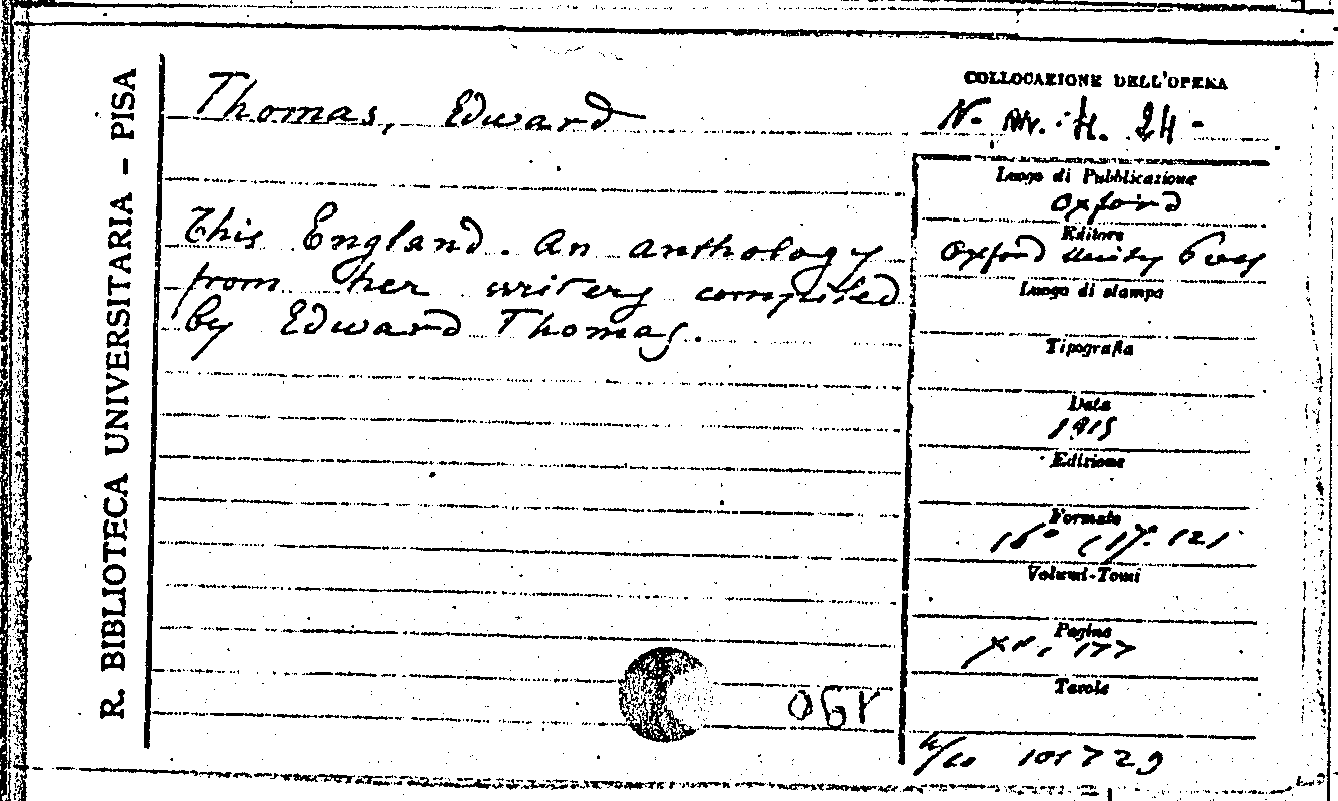 R. BIBLIOTECA UNIVERSITARIA - PISA
Thomas, Edward
This England. An anthology
from her writers compiled
by Edward Thomas.
COLLOCAZIONE DELL'OPERA
N. 24.
Luogo di Pubblicazione
Oxford
Editore
Oxford
Luogo di stampa
Tipografia
Data
1915
Edizione
Formato
16°
Volumi-Tomi
Pagine
177
Tavole
101729